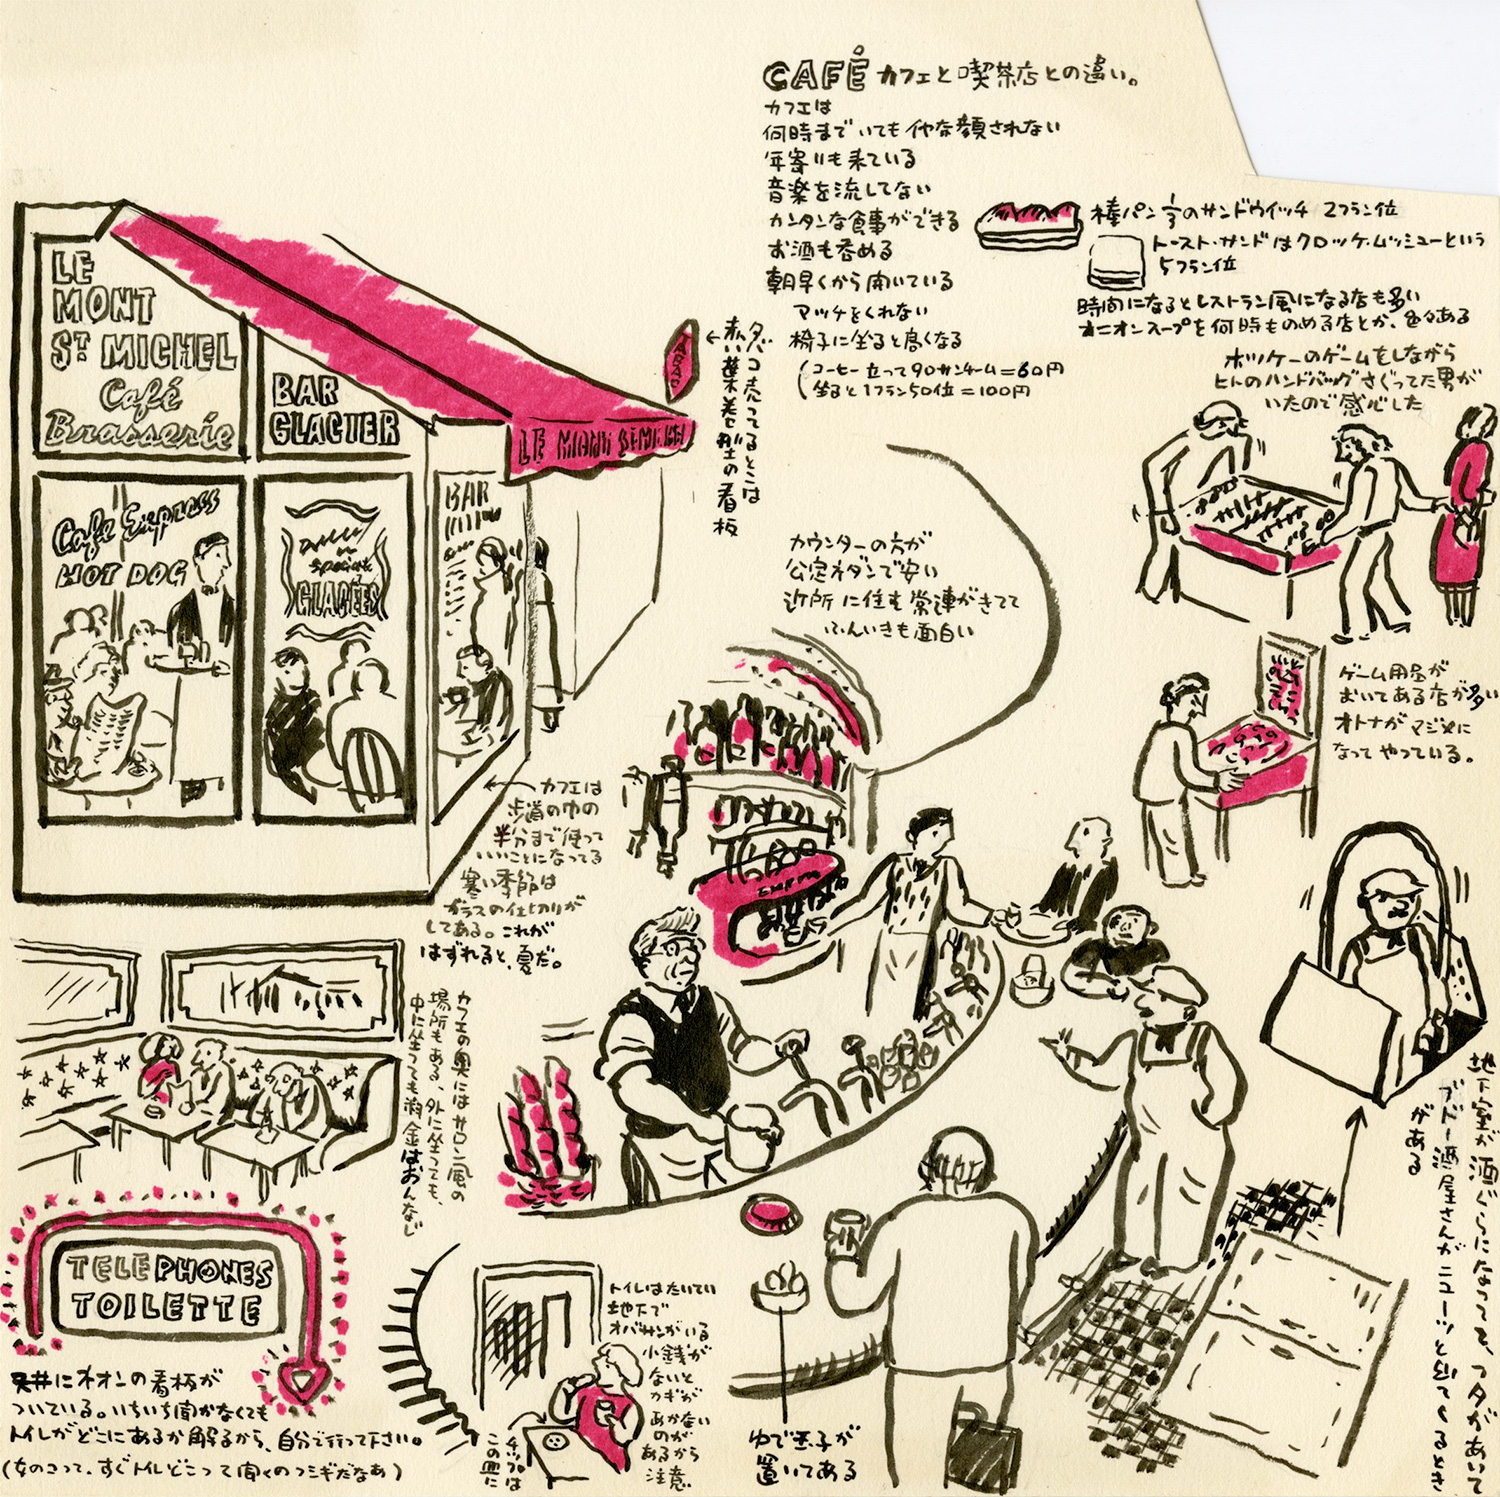 CAFÉ カフェと喫茶店との違い。
カフェは
何時まででいてもイヤな顔されない
年寄りも来ている
音楽を流してない
カンタンな食事ができる
お酒も呑める
朝早くから開いている
マッチをくれない
椅子に坐ると高くなる
(コーヒー立って90サンチーム=60円
坐ると1フラン50位=100円
棒パン1/3のサンドウイッチ 2フラン位
トースト・サンドはクロッケ・ムッシューという
5フラン位
時間になるとレストラン風になる店も多い
オニオンスープを何時ものめる店とか、色々ある
ホッケーのゲームをしながら
ヒトのハンドバッグさぐってた男が
いたので感心した
LE
MONT
ST MICHEL
Café
Brasserie
BAR
GLACIER
LE MONT ST-MICHEL
TABAC
←タバコ売ってるとこは
赤い葉巻型の看板
Cafe Express
HOT DOG
GLACÉES
BAR
カウンターの方が
公定ネダンで安い
近所に住む常連がきてて
ふんいきも面白い
ゲーム用品が
おいてある店が多い
オトナがマジメに
なってやっている。
←カフェは
歩道の巾の
半分まで使って
いいことになってる
寒い季節は
ガラスの仕切りが
してある。これが
はずれると、夏だ。
カフェの奥にはサロン風の
場所もある、外に坐っても、
中に坐っても料金はおんなじ
地下室が酒ぐらになってて、フタがあいて
ブドー酒屋さんがニューッと出てくるとき
がある
TELEPHONES
TOILETTE
天井にネオンの看板が
ついている。いちいち聞かなくても
トイレがどこにあるか解るから、自分で行って下さい。
(女のコって、すぐトイレどこって聞くのフシギだなあ)
トイレはたいてい
地下で
オバサンがいる
小銭が
ないと
カギが
あかない
のが
あるから
注意
チップは
この皿に
ゆで玉子が
置いてある